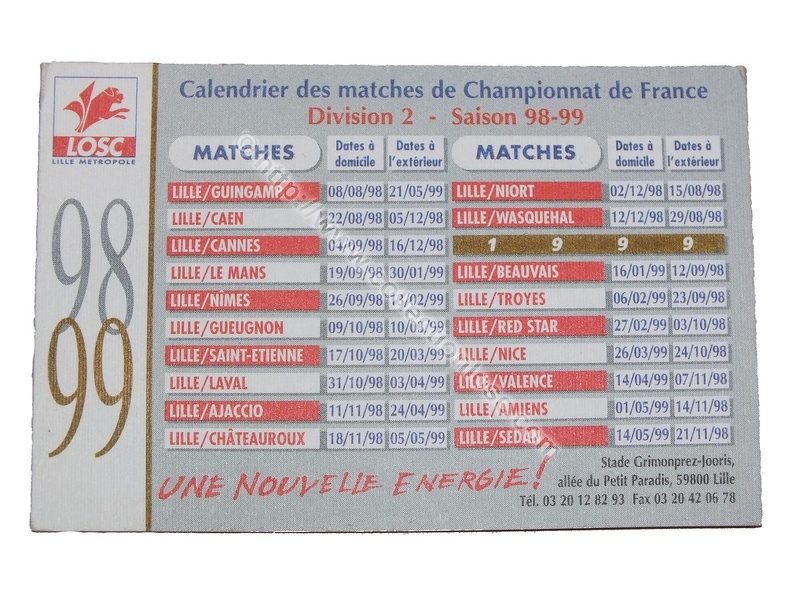 LOSC
LILLE METROPOLE
98
99
Calendrier des matches de Championnat de France
Division 2 - Saison 98-99
MATCHES Dates à domicile Dates à l'extérieur
LILLE/GUINGAMP 08/08/98 21/05/99
LILLE/CAEN 22/08/98 05/12/98
LILLE/CANNES 04/09/98 16/12/98
LILLE/LE MANS 19/09/98 30/01/99
LILLE/NÎMES 26/09/98 13/02/99
LILLE/GUEUGNON 09/10/98 10/03/99
LILLE/SAINT-ETIENNE 17/10/98 20/03/99
LILLE/LAVAL 31/10/98 03/04/99
LILLE/AJACCIO 11/11/98 24/04/99
LILLE/CHÂTEAUROUX 18/11/98 05/05/99
MATCHES Dates à domicile Dates à l'extérieur
LILLE/NIORT 02/12/98 15/08/98
LILLE/WASQUEHAL 12/12/98 29/08/98
1 9 9 9
LILLE/BEAUVAIS 16/01/99 12/09/98
LILLE/TROYES 06/02/99 23/09/98
LILLE/RED STAR 27/02/99 03/10/98
LILLE/NICE 26/03/99 24/10/98
LILLE/VALENCE 14/04/99 07/11/98
LILLE/AMIENS 01/05/99 14/11/98
LILLE/SEDAN 14/05/99 21/11/98
UNE NOUVELLE ENERGIE !
Stade Grimonprez-Jooris,
allée du Petit Paradis, 59800 Lille
Tél. 03 20 12 82 93 Fax 03 20 42 06 78